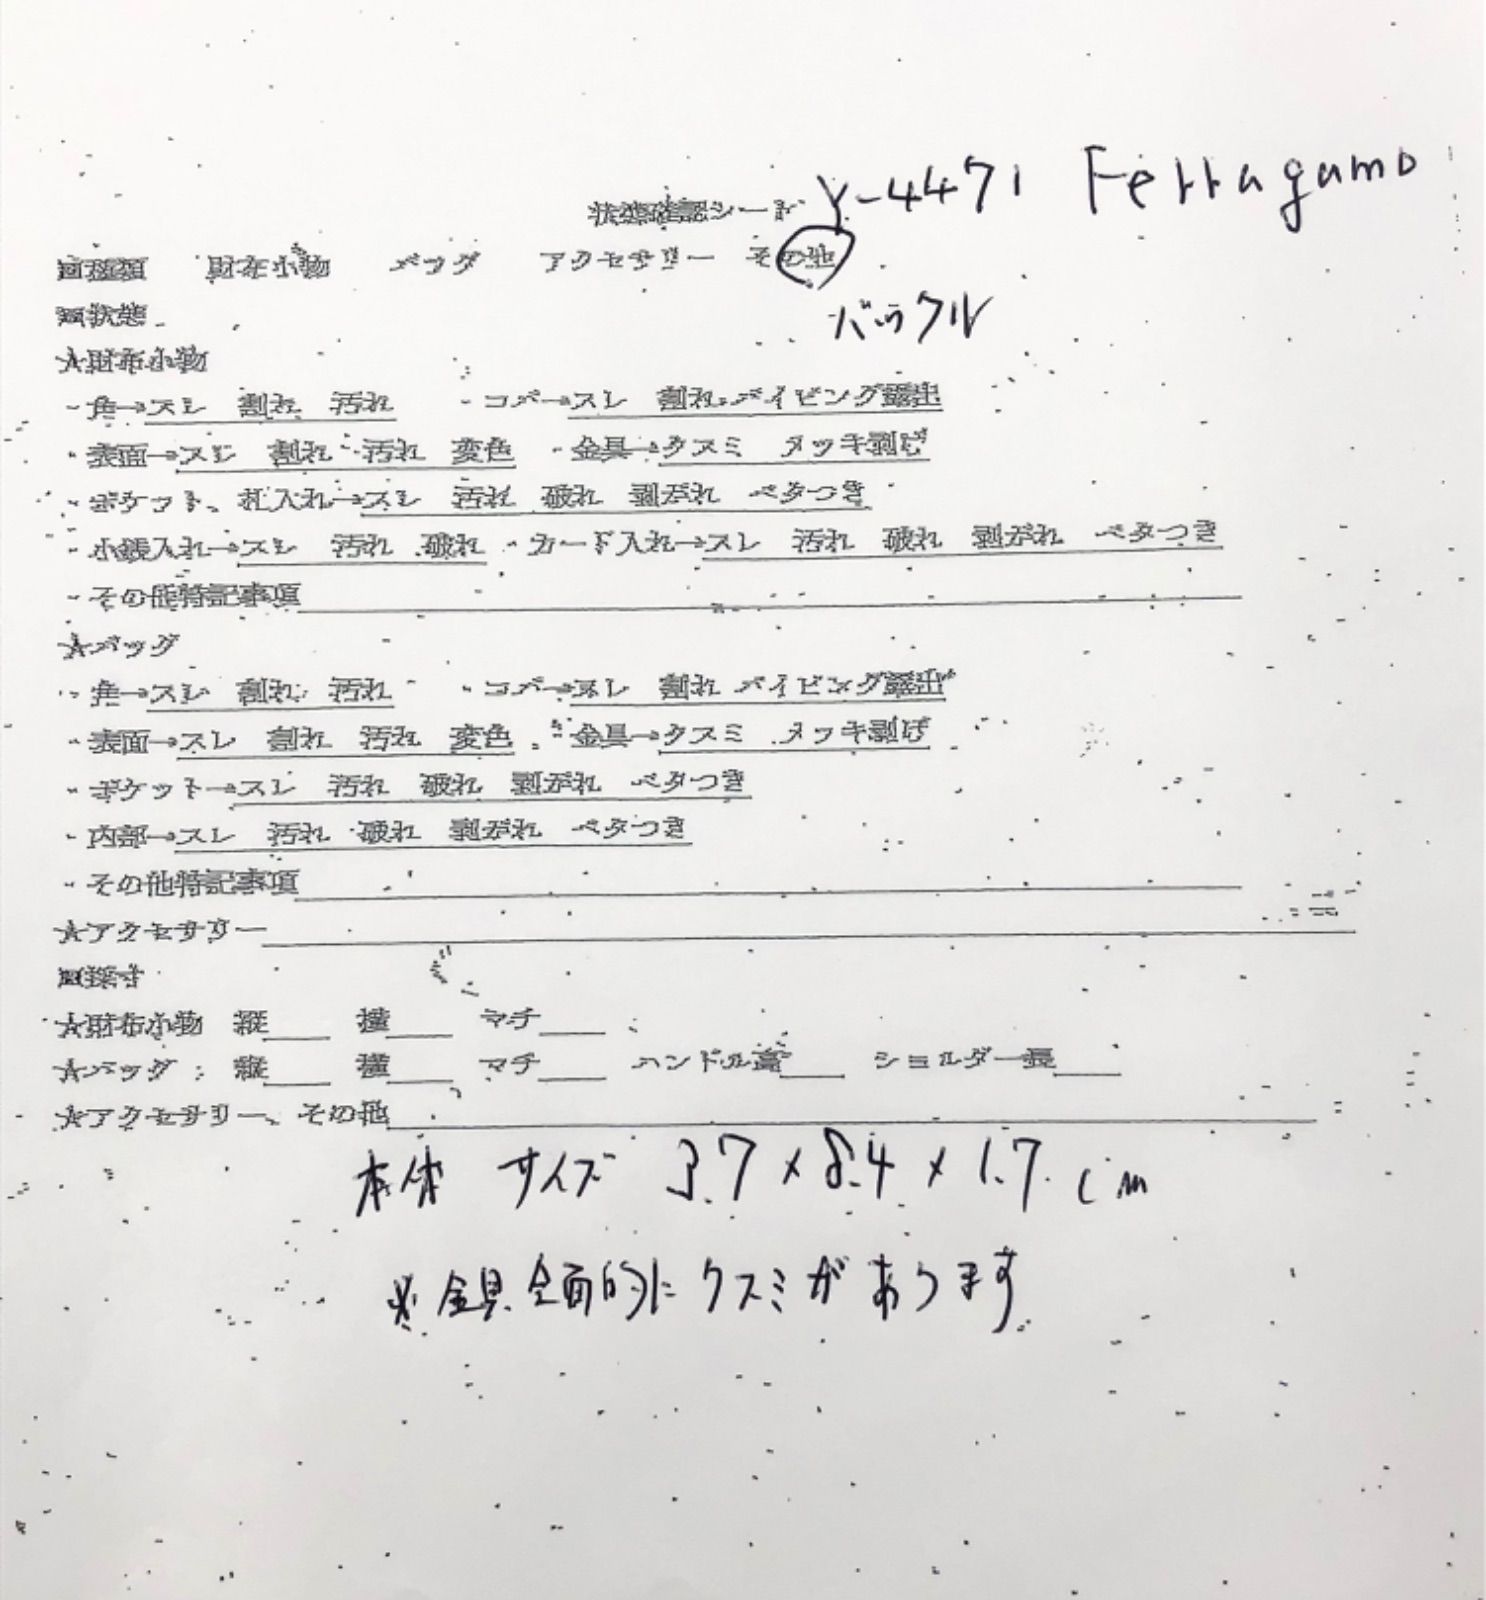 状態確認シート Y-4471 Ferragamo
■種類 財布小物 バッグ アクセサリー その他
バックル
■状態
★財布小物
・角→スレ 割れ 汚れ ・コバ→スレ 割れ パイピング露出
・表面→スレ 割れ 汚れ 変色 ・金具→クスミ メッキ剥げ
・ポケット、札入れ→スレ 汚れ 破れ 剥がれ ベタつき
・小銭入れ→スレ 汚れ 破れ ・カード入れ→スレ 汚れ 破れ 剥がれ ベタつき
・その他特記事項
★バッグ
・角→スレ 割れ 汚れ ・コバ→スレ 割れ パイピング露出
・表面→スレ 割れ 汚れ 変色 ・金具→クスミ メッキ剥げ
・ポケット→スレ 汚れ 破れ 剥がれ ベタつき
・内部→スレ 汚れ 破れ 剥がれ ベタつき
・その他特記事項
★アクセサリー
■採寸
★財布小物 縦 横 マチ
★バッグ 縦 横 マチ ハンドル高 ショルダー長
★アクセサリー、その他
本体 サイズ 3.7×8.4×1.7cm
※金具全面的にクスミがあります